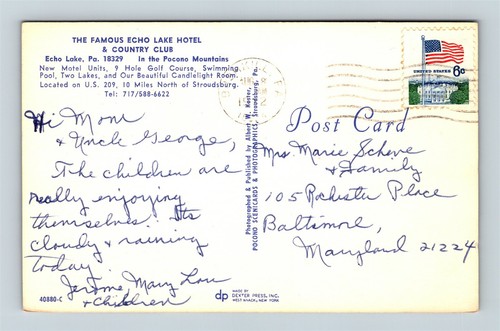 THE FAMOUS ECHO LAKE HOTEL
& COUNTRY CLUB
Echo Lake, Pa. 18329 In the Pocono Mountains
New Motel Units, 9 Hole Golf Course, Swimming
Pool, Two Lakes, and Our Beautiful Candlelight Room.
Located on U.S. 209, 10 Miles North of Stroudsburg.
Tel: 717/588-6622
Hi Mom
& Uncle George,
The children are
really enjoying
themselves. Its
cloudy & raining
today.
Jerome, Mary Lou
& children
40880-C
Photographed & Published by Albert W. Koster,
POCONO SCENICARDS & PHOTOGRAPHICS, Stroudsburg, Pa.
UNITED STATES 6c
Post Card
Mrs. Marie Scheve
& Family
105 Rochester Place
Baltimore,
Maryland 21224
dp
MADE BY
DEXTER PRESS, INC.
WEST NYACK, NEW YORK